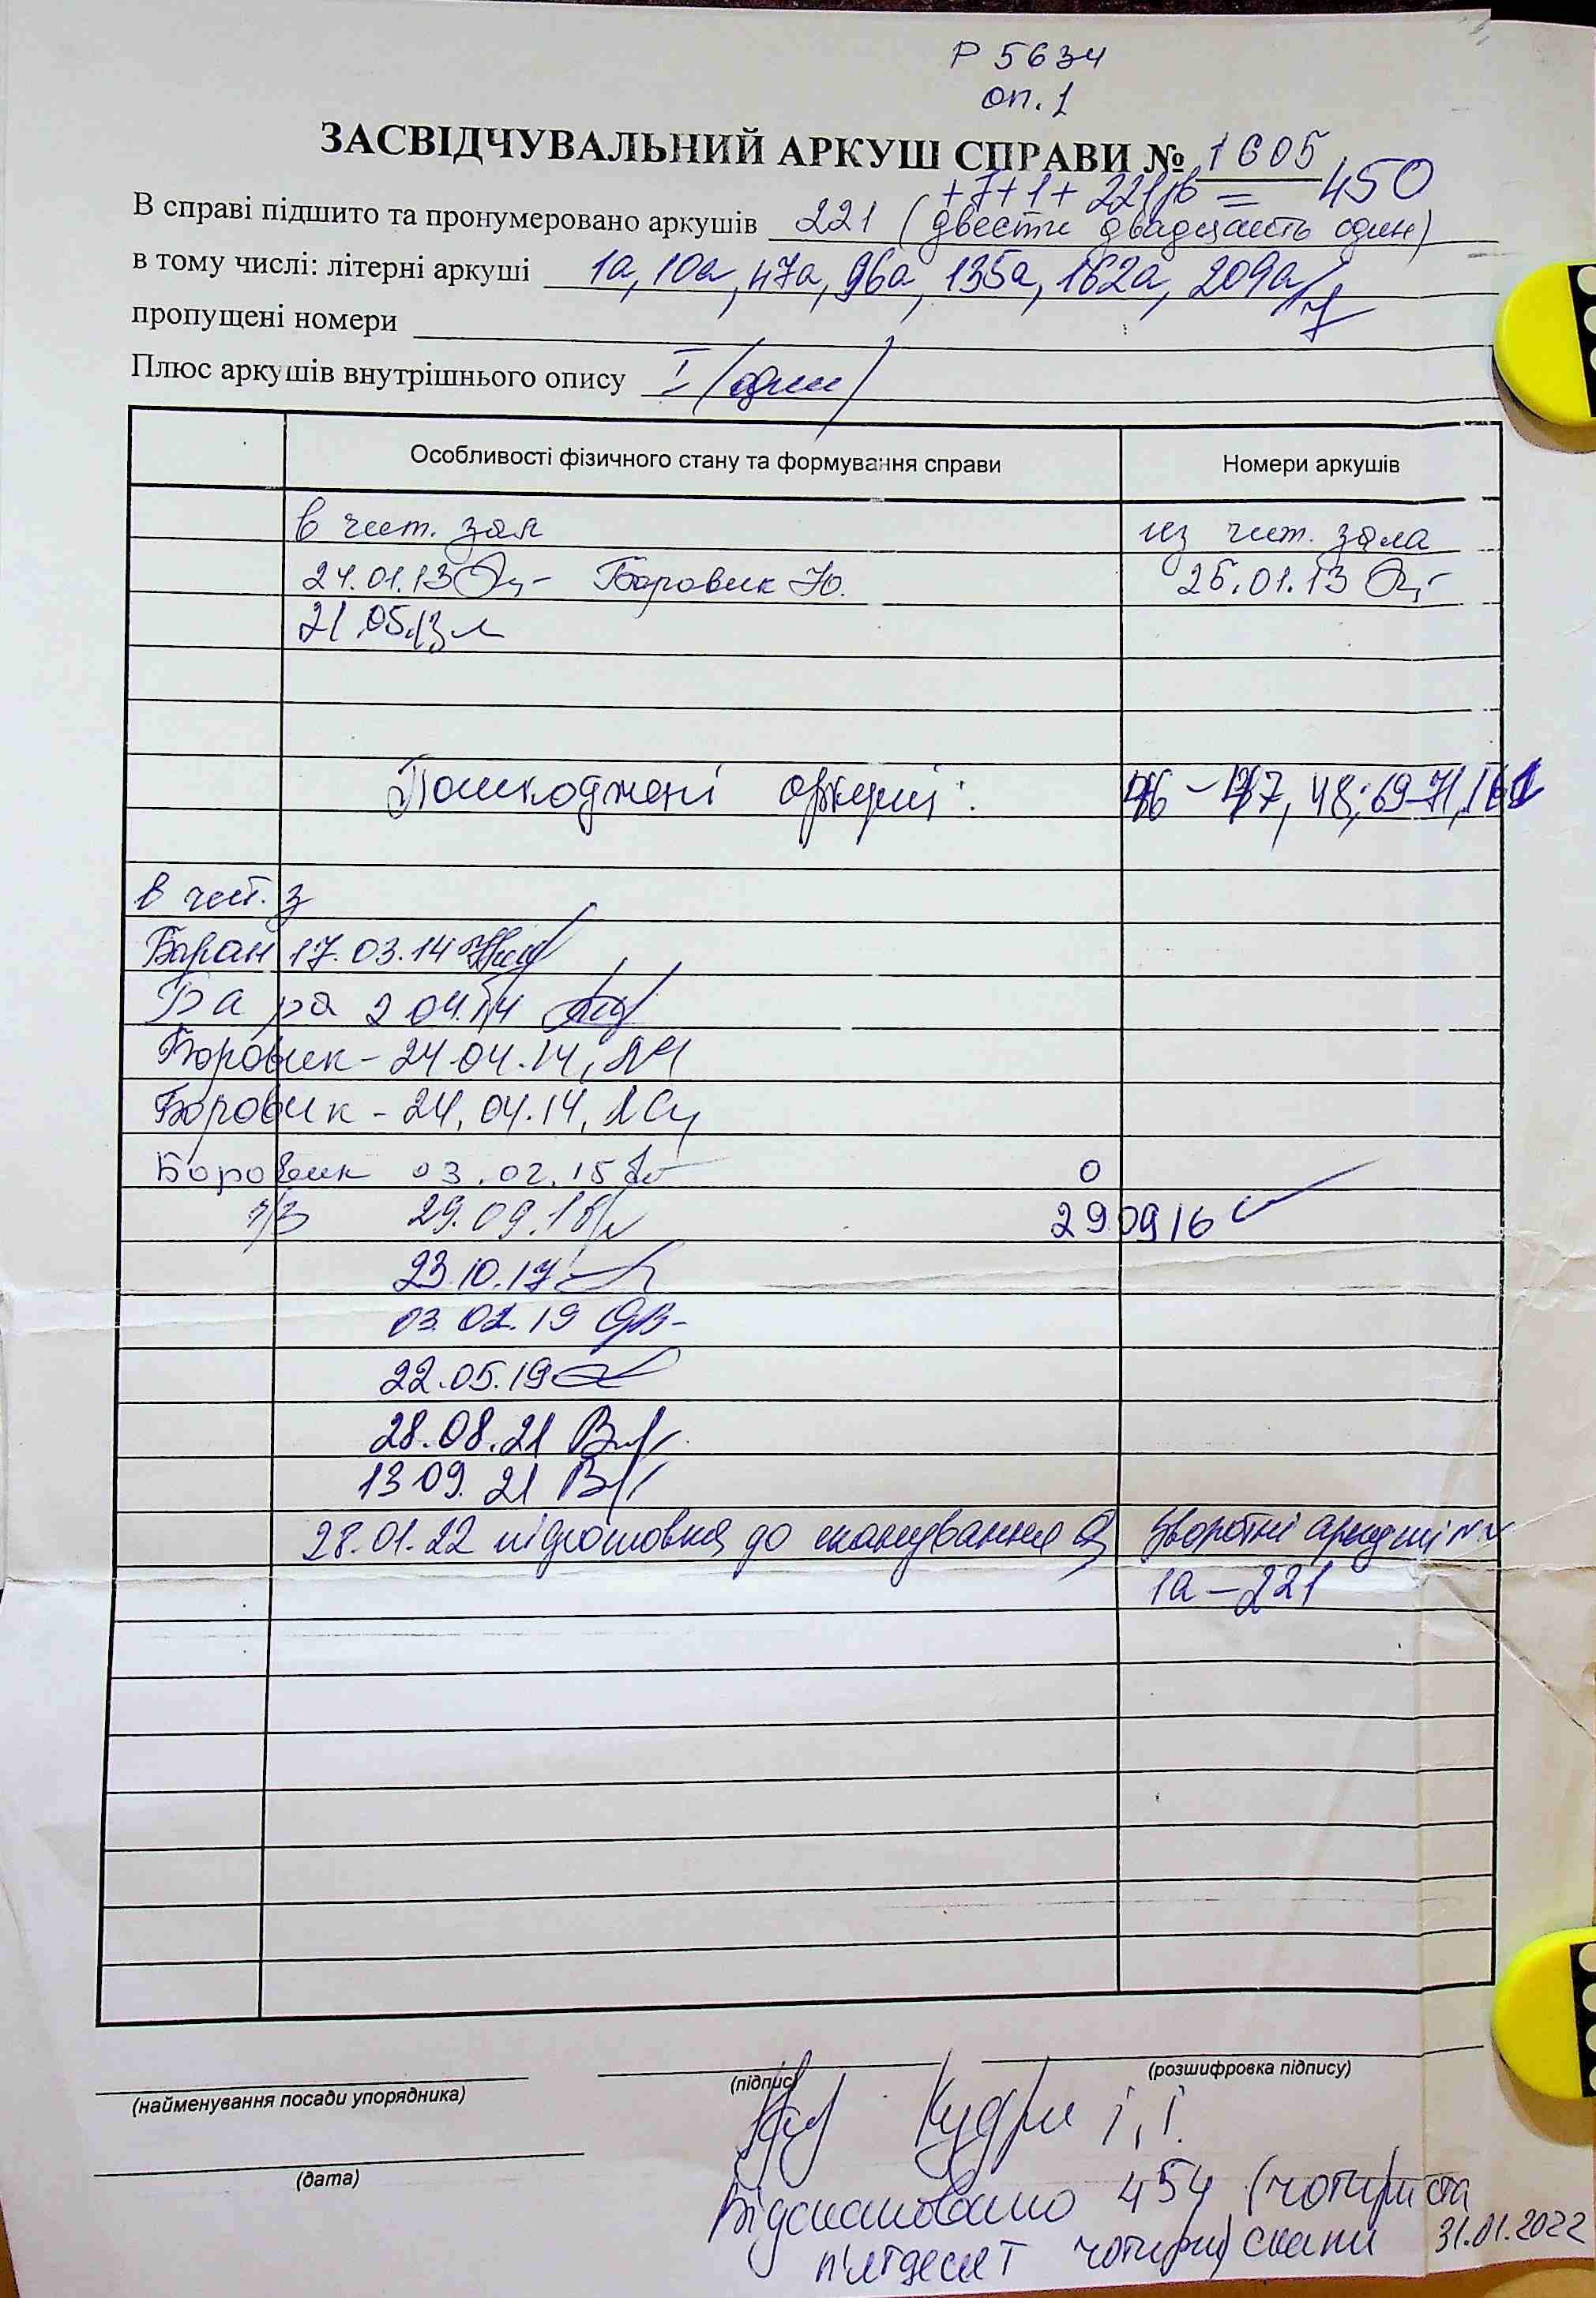 Р 5634
оп. 1
ЗАСВІДЧУВАЛЬНИЙ АРКУШ СПРАВИ № 1605
+7+1+ 221зв = 450
В справі підшито та пронумеровано аркушів 221 (двести двадцать один)
в тому числі: літерні аркуші 1а, 10а, 47а, 96а, 135а, 162а, 209а/7
пропущені номери
Плюс аркушів внутрішнього опису I (один)
Особливості фізичного стану та формування справи Номери аркушів
в чит. зал из чит. зала
24.01.13 Боровик Ю. 25.01.13
21.05.13
Пошкоджені аркуші: 48, 69-71, 161
в чит. з
Баран 17.03.14
Бара 2 04.14
Боровик - 24.04.14,
Боровик - 24.04.14,
Боровик 03.02.15 0
ч/з 29.09.16 290916
23.10.17
03.02.19
22.05.19
28.08.21
13 09. 21
28.01.22 підготовка до сканування Зворотні аркуші
1а - 221
(найменування посади упорядника) (підпис) (розшифровка підпису)
Кудри І.І.
(дата)
Відскановано 454 (чотириста
п'ятдесят чотири) скани 31.01.2022